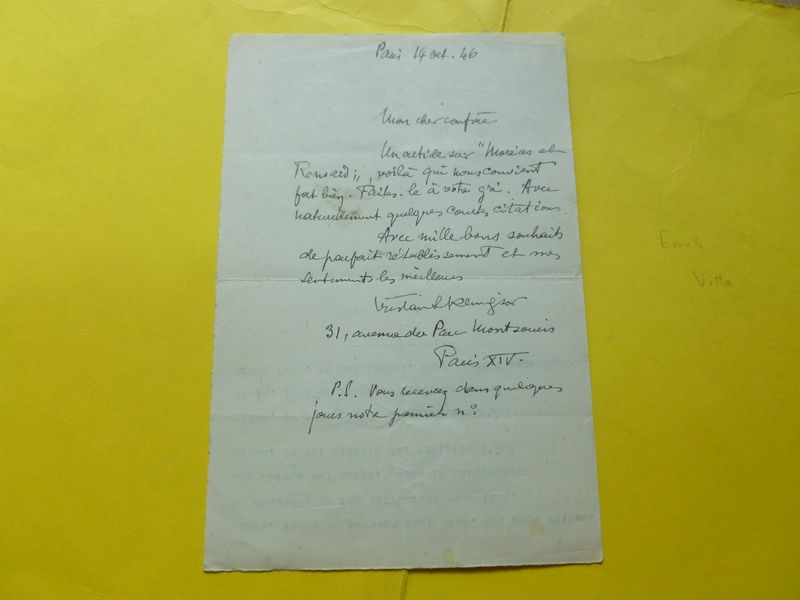 Paris 14 oct. 46
Mon cher confrère
Un article sur "Moréas et
Ronsard", voilà qui nous convient
fort bien. Faites-le à votre gré. Avec
naturellement quelques courtes citations.
Avec mille bons souhaits
de parfait rétablissement et mes
sentiments les meilleurs
Tristan Klingsor
31, avenue du Parc Montsouris
Paris XIV.
P.S. Vous recevrez dans quelques
jours notre premier n°.
Emile
Vitta